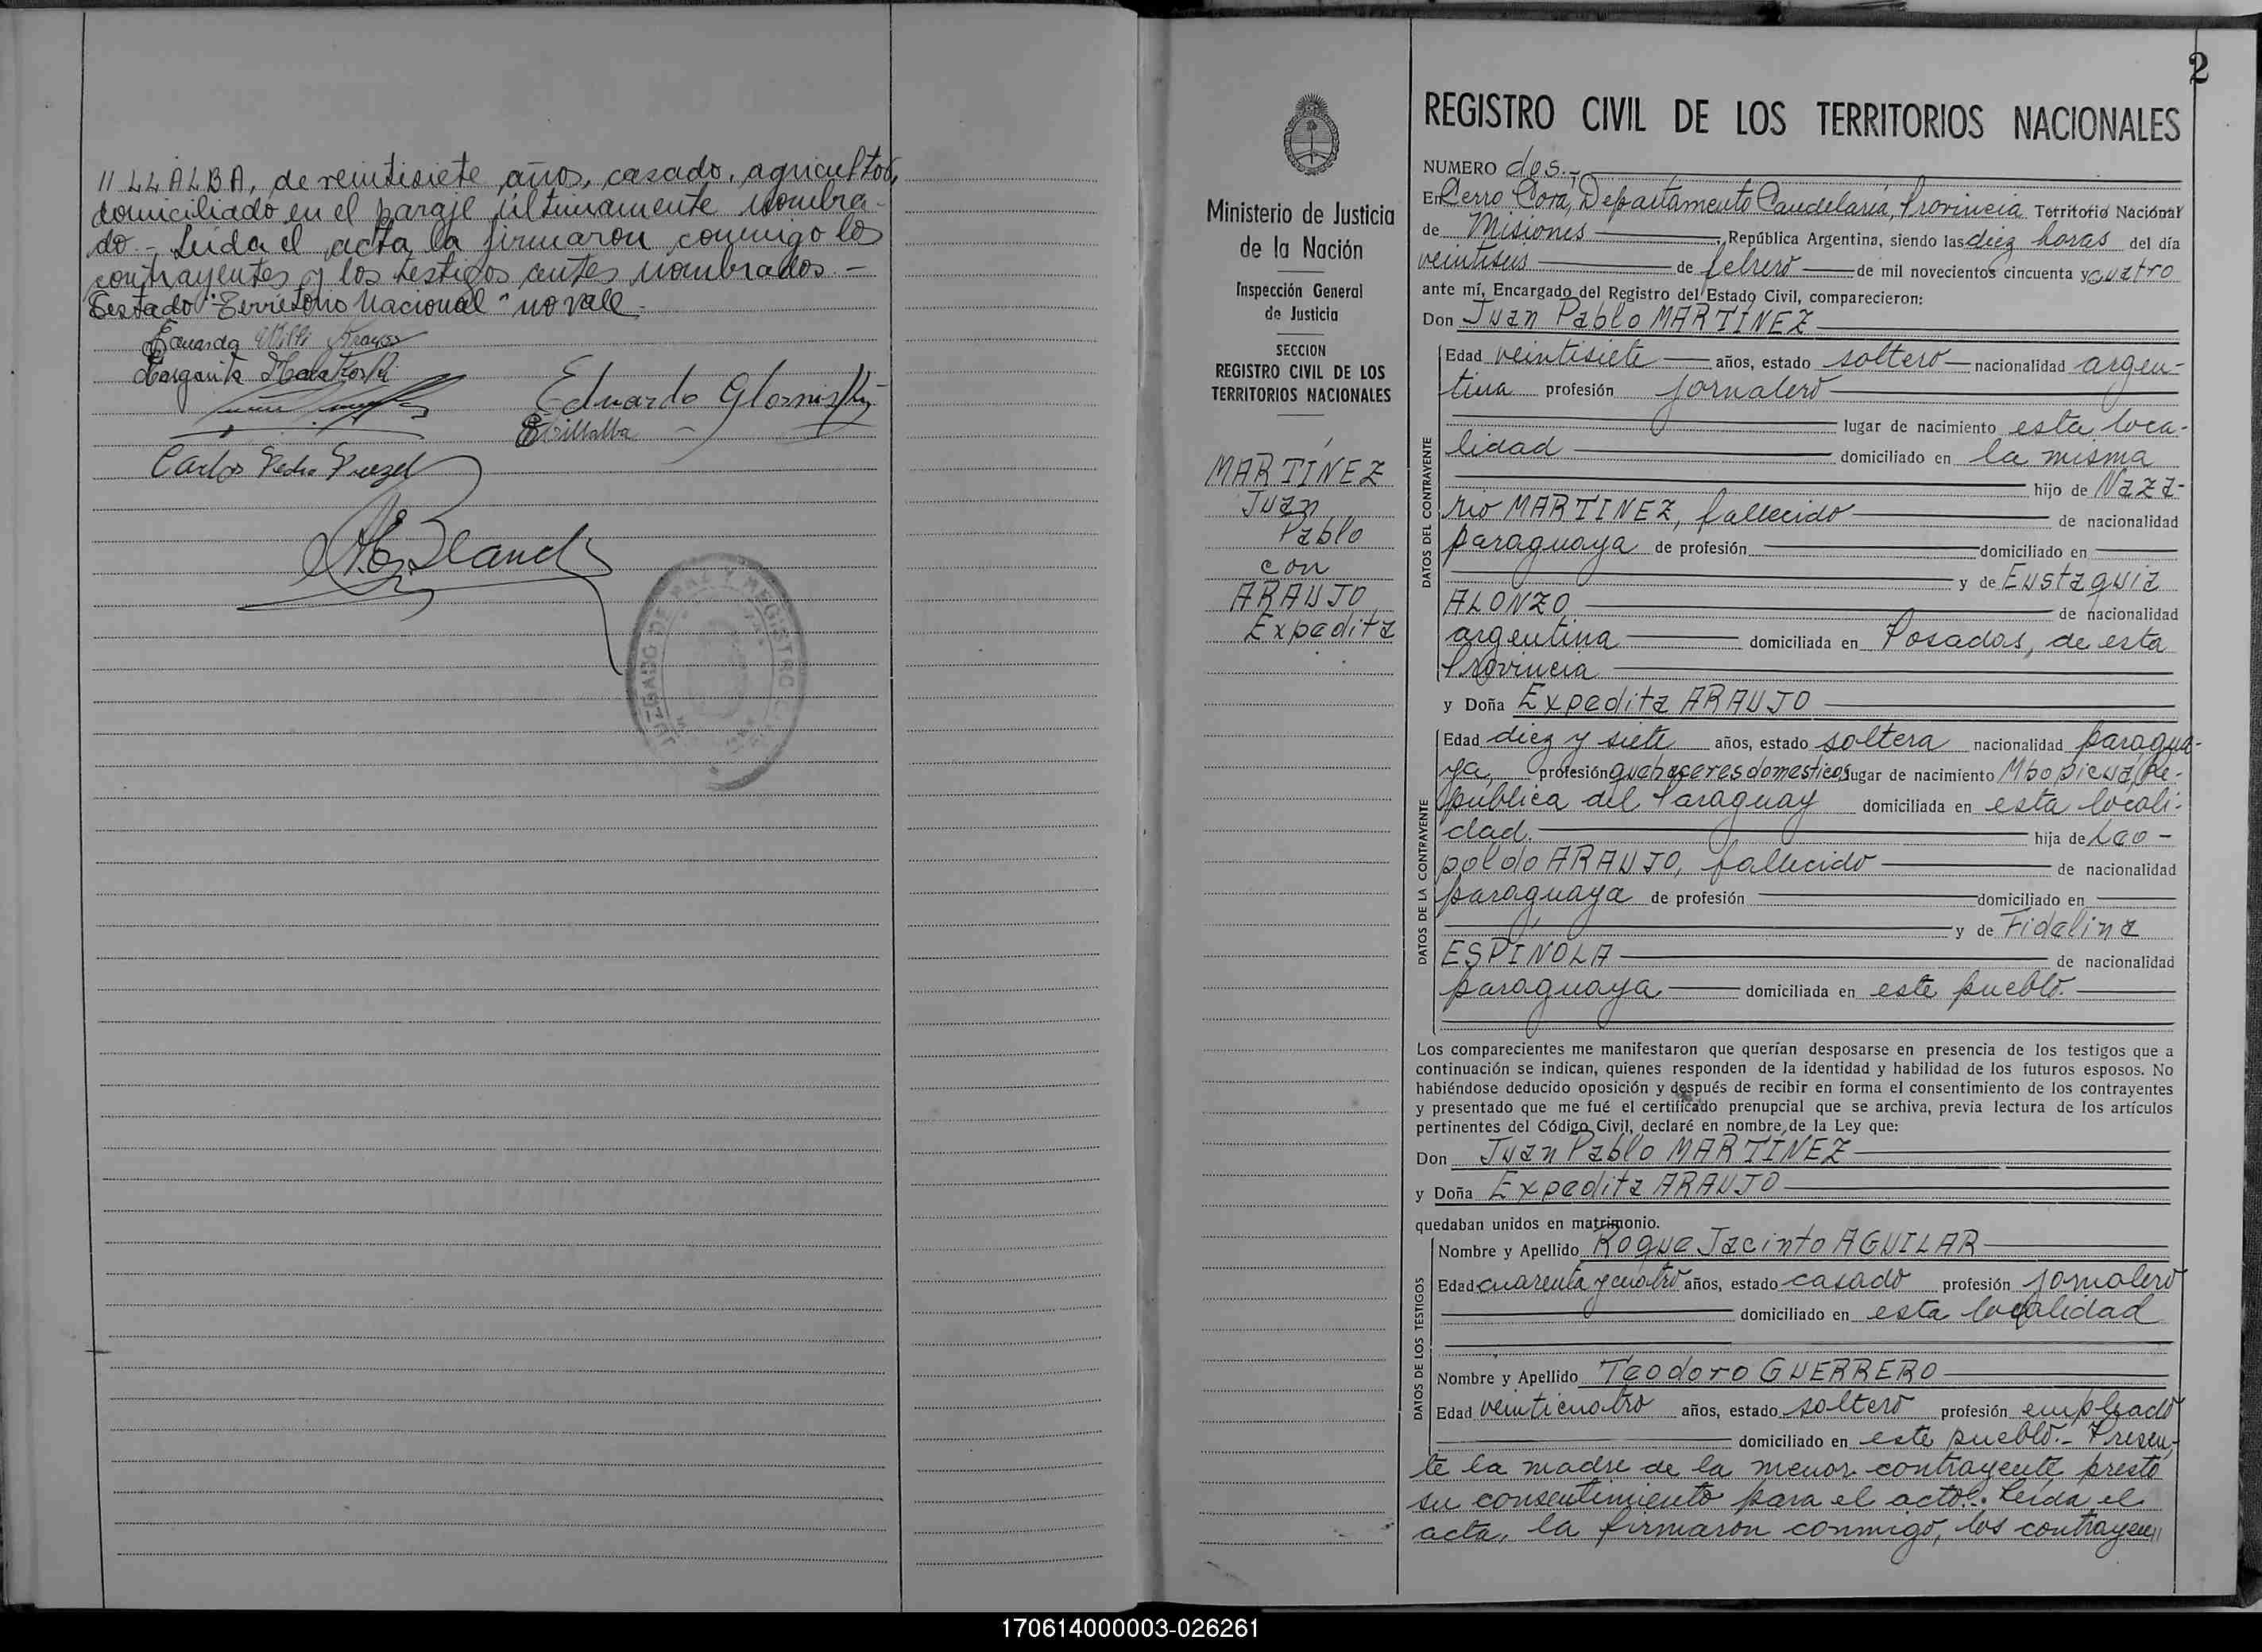 // LLALBA, de veintisiete años, casado, agricultor,
domiciliado en el paraje últimamente nombra-
do.- Leida el acta la firmaron conmigo los
contrayentes y los testigos antes nombrados.-
Testado "Territorio Nacional" no vale.-
Eduardo
Margarita
Eduardo
Villalba
Carlos Pedro
JUZGADO DE PAZ Y REGISTRO
2
Ministerio de Justicia
de la Nación
Inspección General
de Justicia
SECCION
REGISTRO CIVIL DE LOS
TERRITORIOS NACIONALES
MARTÍNEZ
Juan
Pablo
con
ARAUJO
Expedita
REGISTRO CIVIL DE LOS TERRITORIOS NACIONALES
NUMERO dos.-
En Cerro Corá, Departamento Candelaria, Provincia Territorio Nacional
de Misiones, República Argentina, siendo las diez horas del día
veintiseis de febrero de mil novecientos cincuenta y cuatro
ante mí, Encargado del Registro del Estado Civil, comparecieron:
Don Juan Pablo MARTÍNEZ
DATOS DEL CONTRAYENTE
Edad veintisiete años, estado soltero nacionalidad argen-
tina profesión jornalero
lugar de nacimiento esta loca-
lidad domiciliado en la misma
hijo de Naza-
rio MARTINEZ, fallecido de nacionalidad
paraguaya de profesión domiciliado en
y de Eustaquia
ALONZO de nacionalidad
argentina domiciliada en Posadas, de esta
Provincia
y Doña Expedita ARAUJO
DATOS DE LA CONTRAYENTE
Edad diez y siete años, estado soltera nacionalidad paragua-
ya, profesión quehaceres domesticos, lugar de nacimiento Mbopicua, Re-
pública del Paraguay domiciliada en esta locali-
dad. hija de Leo-
poldo ARAUJO, fallecido de nacionalidad
paraguaya de profesión domiciliado en
y de Fidelina
ESPÍNOLA de nacionalidad
paraguaya domiciliada en este pueblo.
Los comparecientes me manifestaron que querían desposarse en presencia de los testigos que a
continuación se indican, quienes responden de la identidad y habilidad de los futuros esposos. No
habiéndose deducido oposición y después de recibir en forma el consentimiento de los contrayentes
y presentado que me fué el certificado prenupcial que se archiva, previa lectura de los artículos
pertinentes del Código Civil, declaré en nombre de la Ley que:
Don Juan Pablo MARTÍNEZ
y Doña Expedita ARAUJO
quedaban unidos en matrimonio.
DATOS DE LOS TESTIGOS
Nombre y Apellido Roque Jacinto AGUILAR
Edad cuarenta y cuatro años, estado casado profesión jornalero
domiciliado en esta localidad
Nombre y Apellido Teodoro GUERRERO
Edad veinticuatro años, estado soltero profesión empleado
domiciliado en este pueblo.- Presen-
te la madre de la menor contrayente prestó
su consentimiento para el acto.- Leida el
acta, la firmaron conmigo, los contrayen//
170614000003-026261